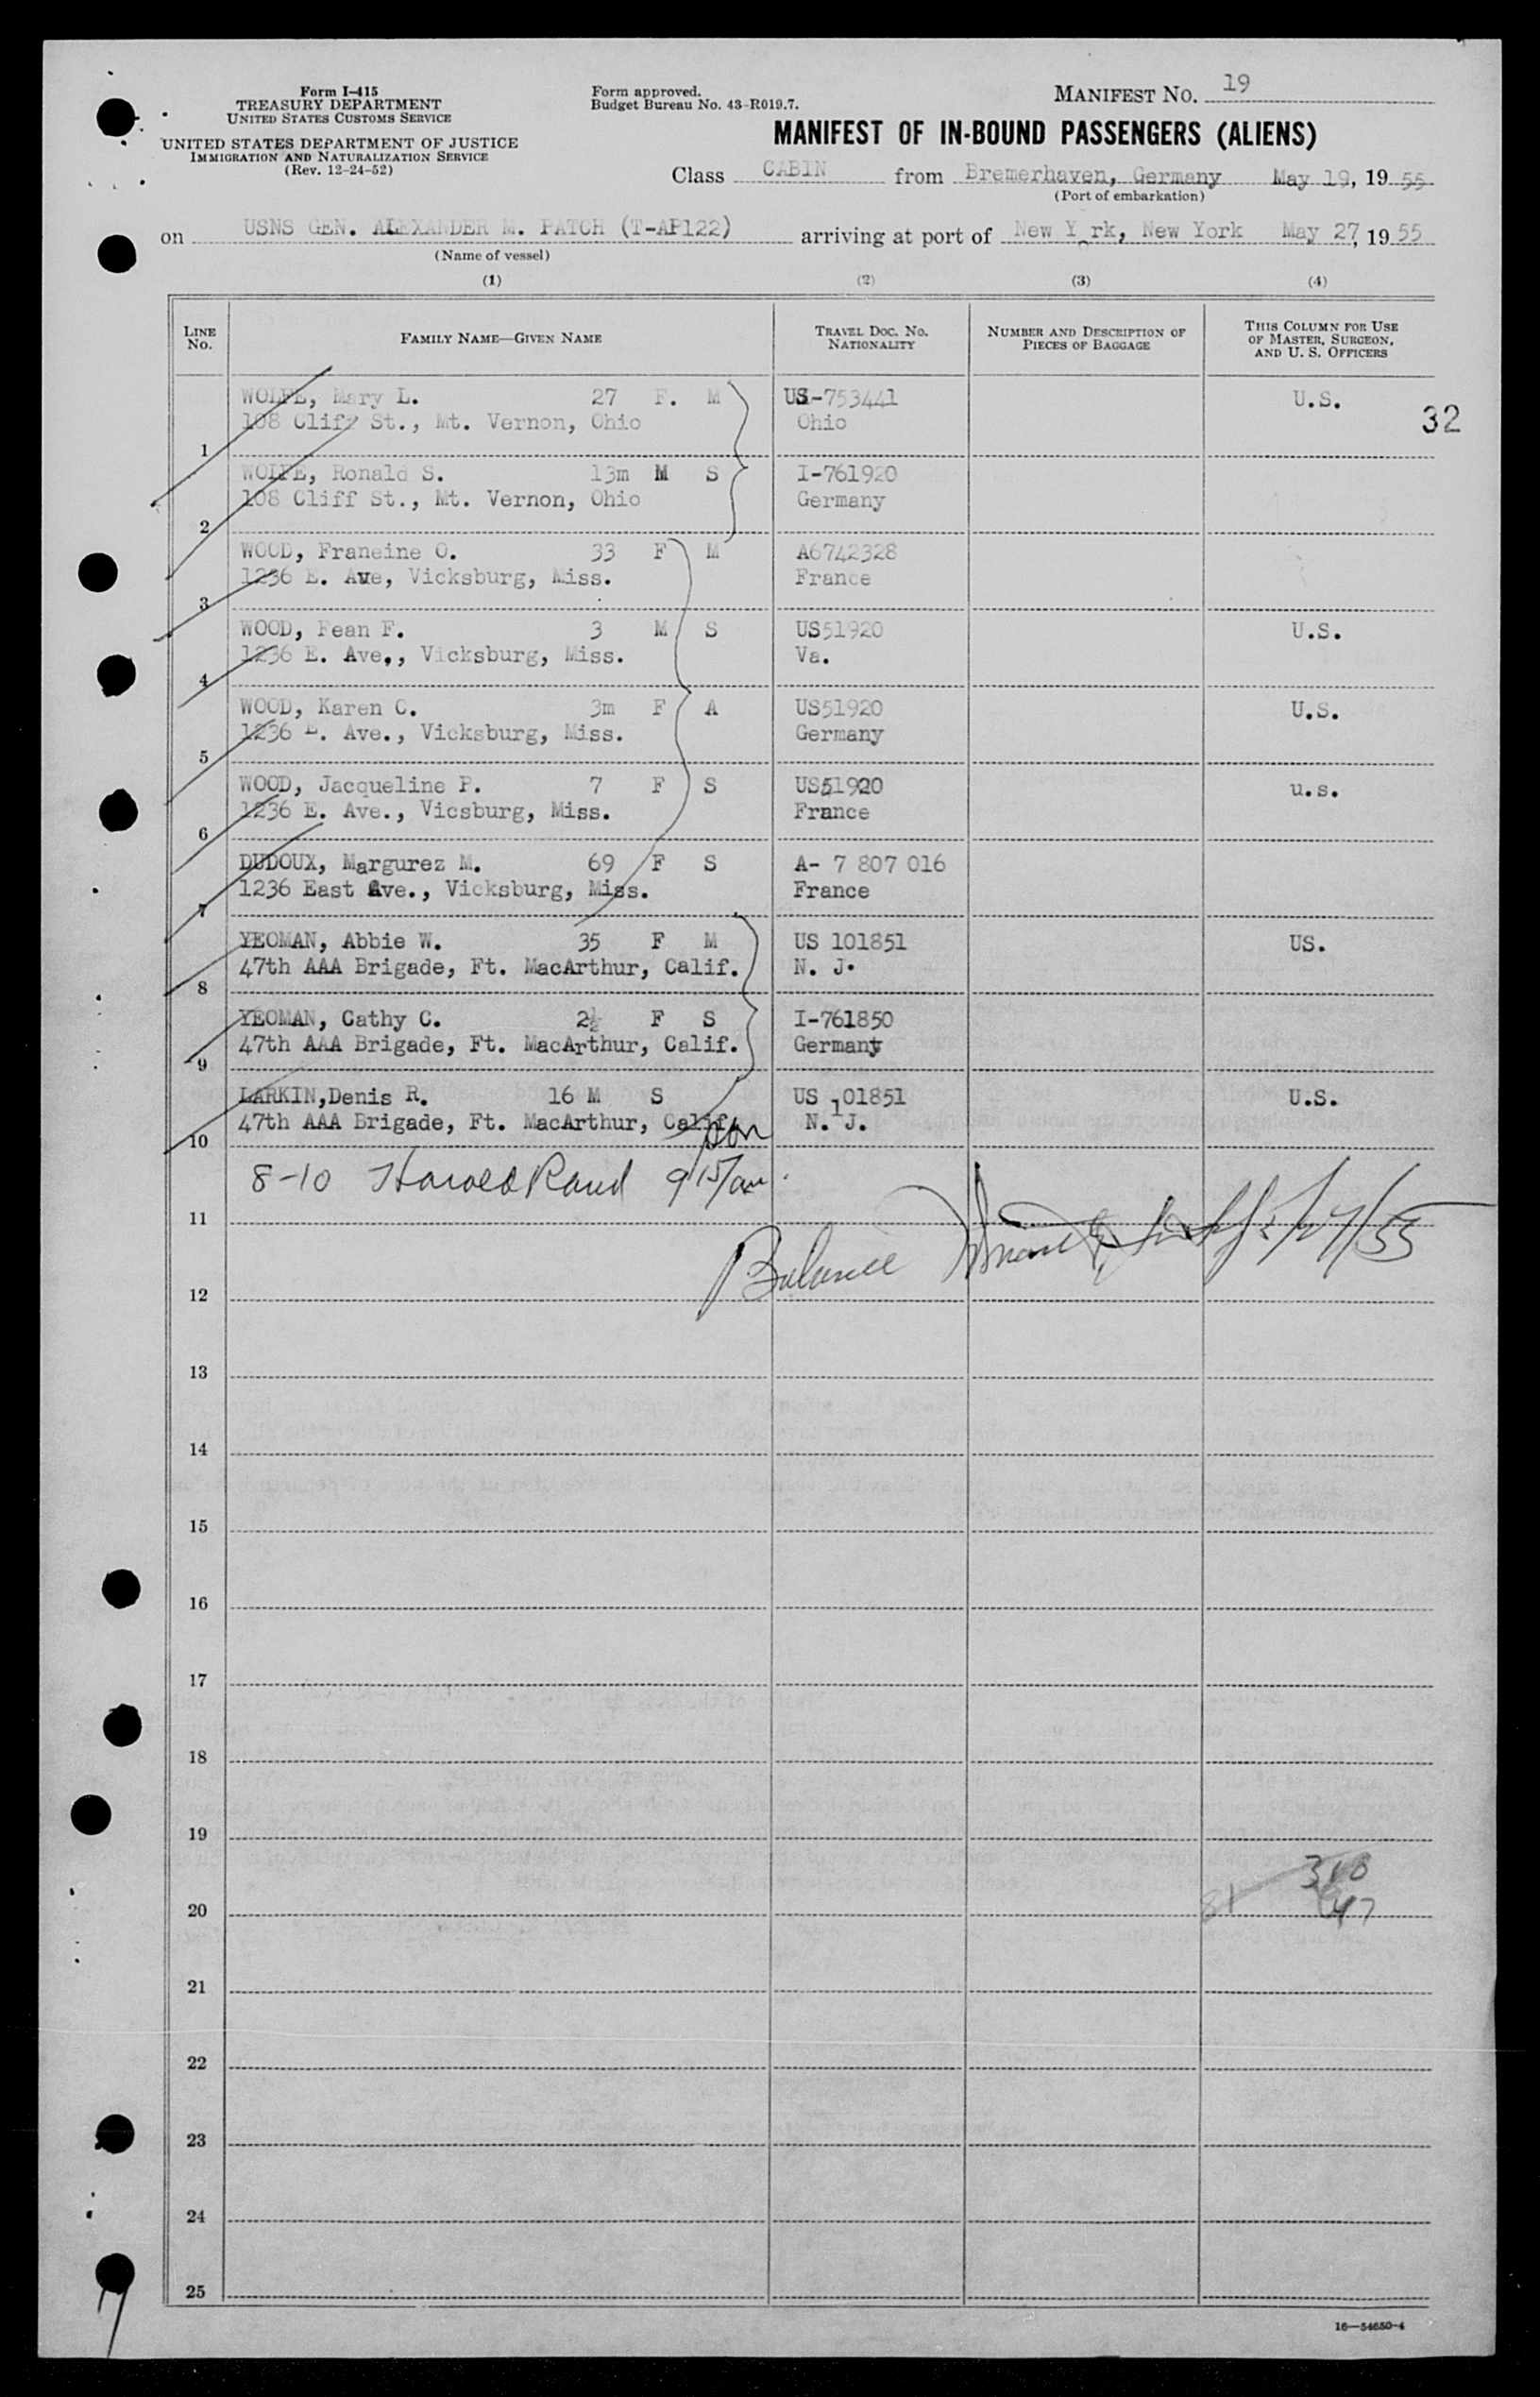 Form I-415
TREASURY DEPARTMENT
UNITED STATES CUSTOMS SERVICE
UNITED STATES DEPARTMENT OF JUSTICE
IMMIGRATION AND NATURALIZATION SERVICE
(Rev. 12-24-52)
Form approved.
Budget Bureau No. 43-R019.7.
MANIFEST NO. 19
MANIFEST OF IN-BOUND PASSENGERS (ALIENS)
Class CABIN from Bremerhaven, Germany May 19, 19 55
(Port of embarkation)
on USNS GEN. ALEXANDER M. PATCH (T-AP122) arriving at port of New Y rk, New York May 27, 19 55
(Name of vessel)
(1) (2) (3) (4)
LINE No. FAMILY NAME—GIVEN NAME TRAVEL DOC. NO. NATIONALITY NUMBER AND DESCRIPTION OF PIECES OF BAGGAGE THIS COLUMN FOR USE OF MASTER, SURGEON, AND U. S. OFFICERS
WOLFE, Mary L. 27 F. M US-753441 U.S.
32
108 Cliff St., Mt. Vernon, Ohio Ohio
1
WOLFE, Ronald S. 13m M S I-761920
108 Cliff St., Mt. Vernon, Ohio Germany
2
WOOD, Franeine O. 33 F M A6742328
1236 E. Ave, Vicksburg, Miss. France
3
WOOD, Fean F. 3 M S US51920 U.S.
1236 E. Ave,, Vicksburg, Miss. Va.
4
WOOD, Karen C. 3m F A US51920 U.S.
1236 E. Ave., Vicksburg, Miss. Germany
5
WOOD, Jacqueline P. 7 F S US51920 u.s.
1236 E. Ave., Vicsburg, Miss. France
6
DUDOUX, Margurez M. 69 F S A- 7 807 016
1236 East Ave., Vicksburg, Miss. France
7
YEOMAN, Abbie W. 35 F M US 101851 US.
47th AAA Brigade, Ft. MacArthur, Calif. N. J.
8
YEOMAN, Cathy C. 2½ F S I-761850
47th AAA Brigade, Ft. MacArthur, Calif. Germany
9
LARKIN,Denis R. 16 M S US 101851 U.S.
47th AAA Brigade, Ft. MacArthur, Calif. N. J.
10
8-10 Harold Rand 9 15/am
11
Balance 5/27/55
12
13
14
15
16
17
18
19
310
20
81 47
21
22
23
24
25
16—54650-4